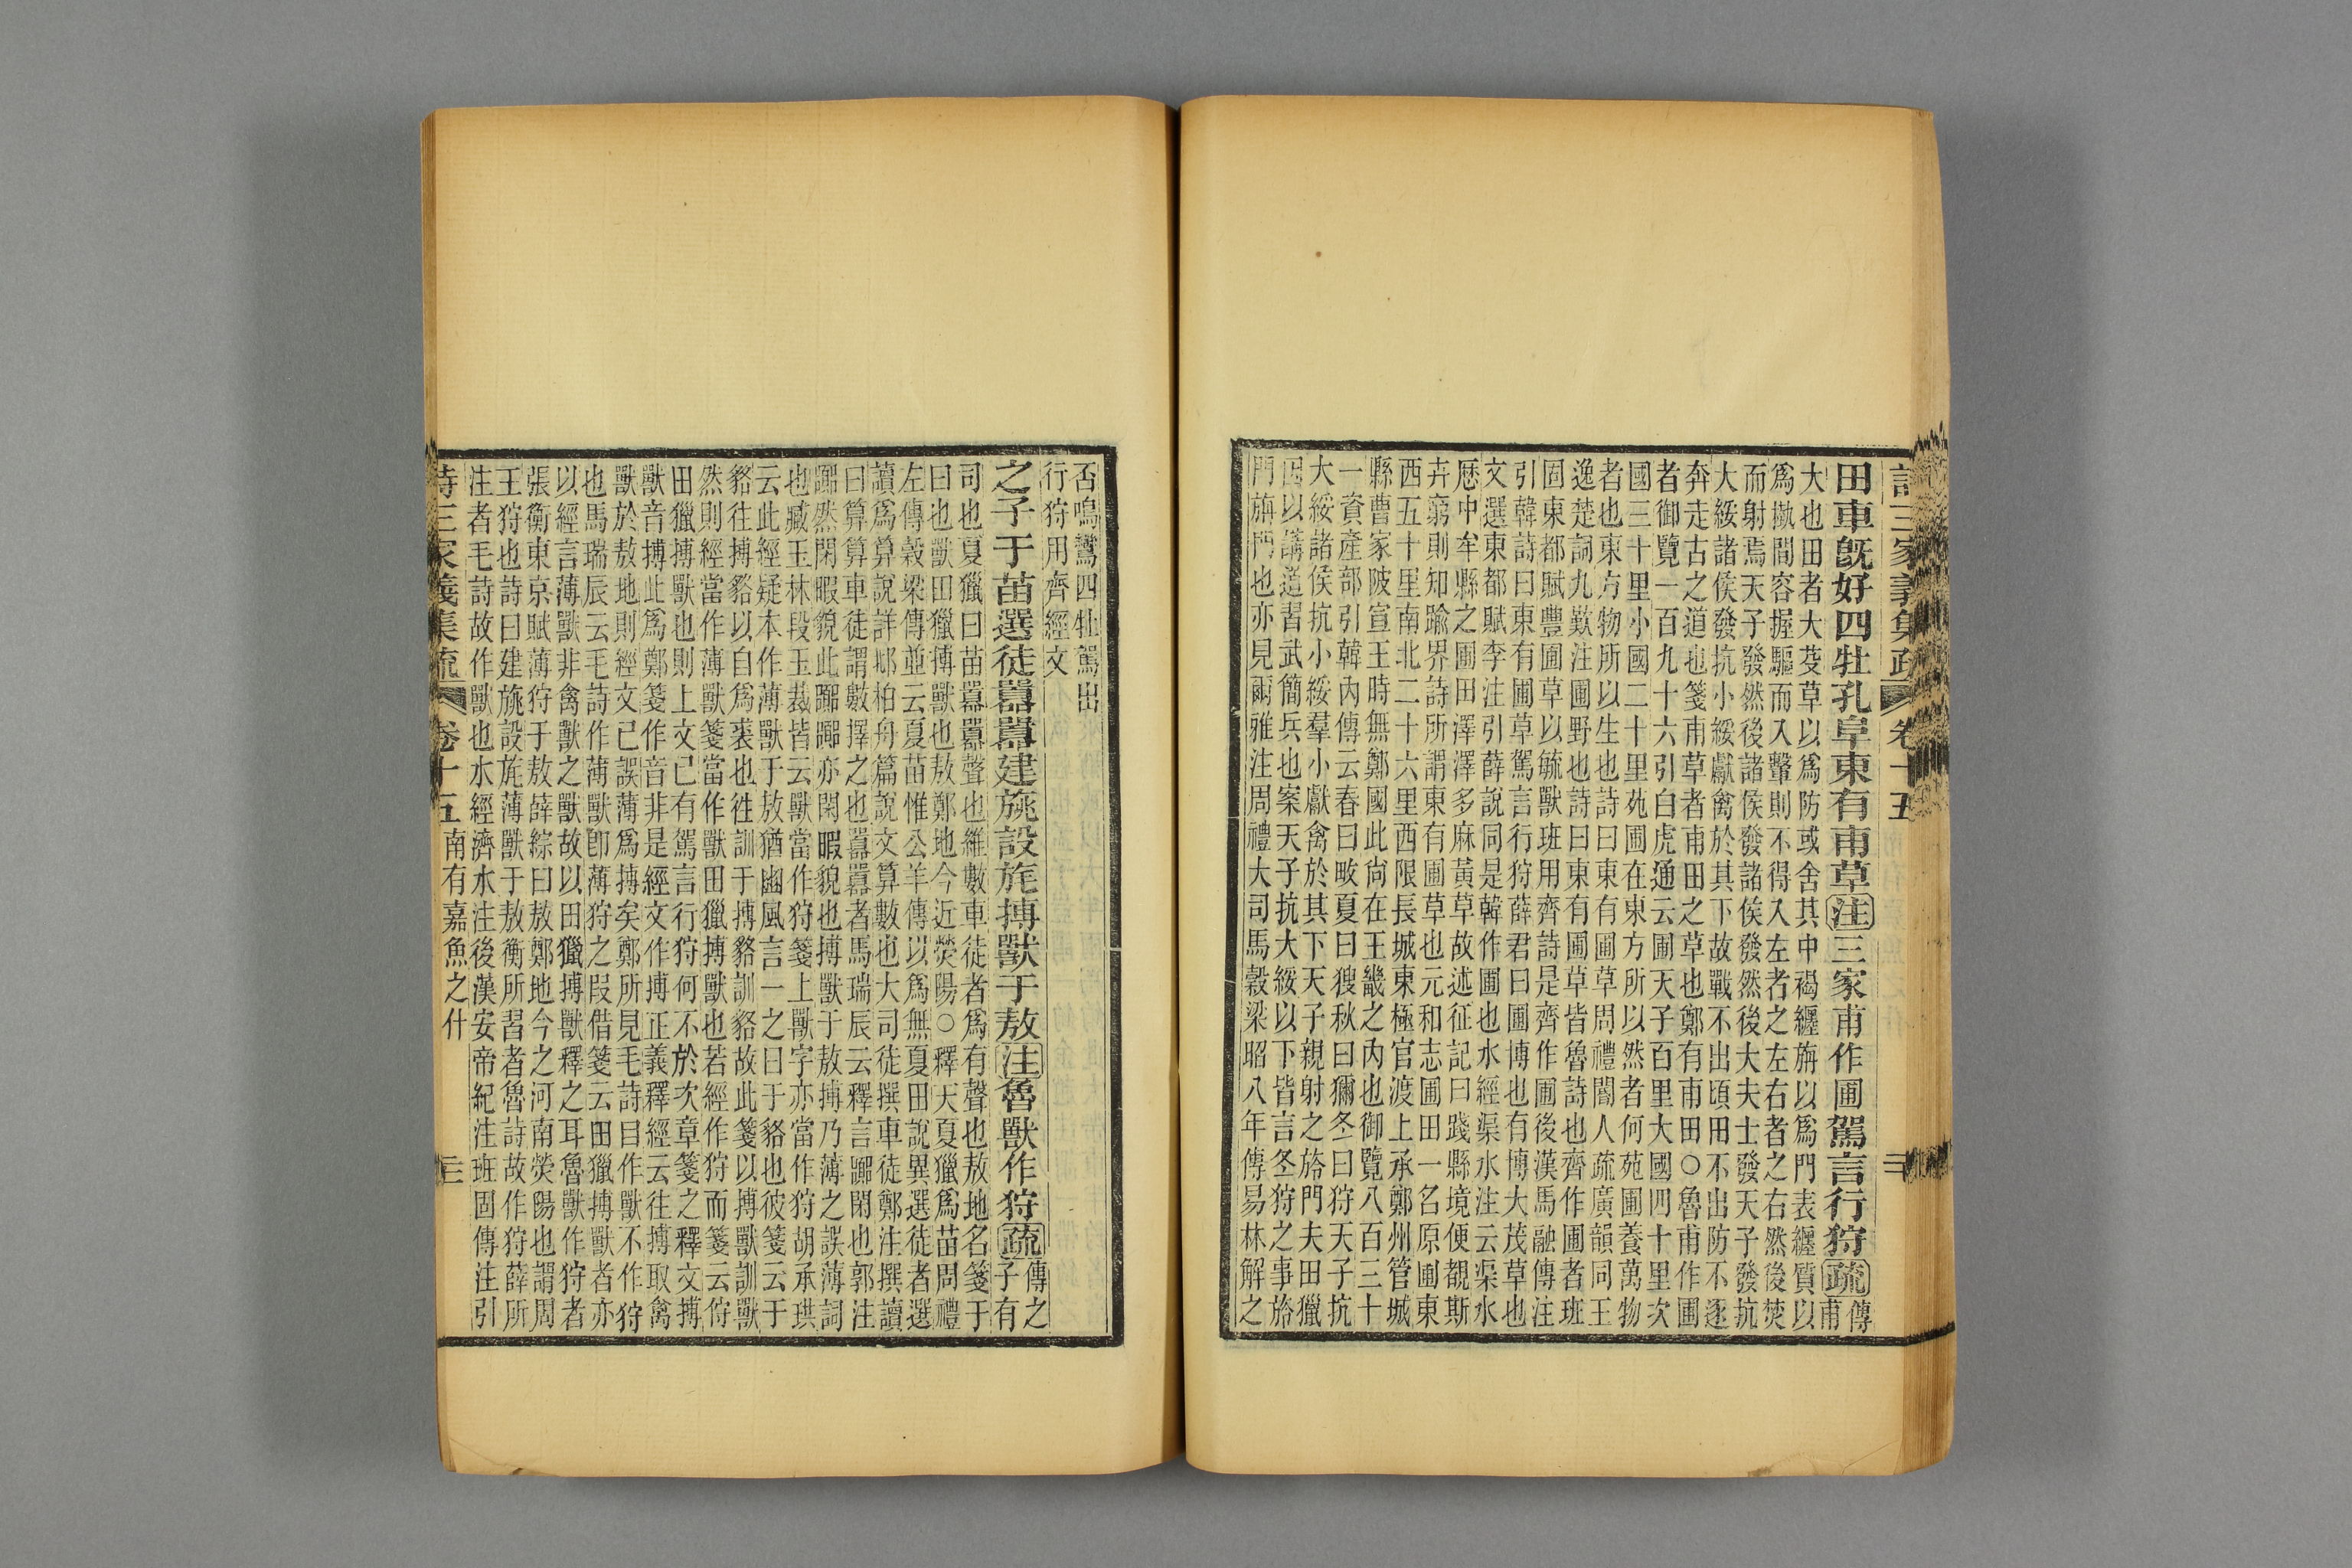 詩三家義集疏 卷十五
田車既好四牡孔阜東有甫草注三家甫作圃駕言行狩疏傳甫
大也田者大芟草以爲防或舍其中褐纏旃以爲門表纏質以
爲㮰間容握驅而入轚則不得入左者之左右者之右然後焚
而射焉天子發然後諸侯發諸侯發然後大夫士發天子發抗
大綏諸侯發抗小綏獻禽於其下故戰不出頃田不出防不逐
奔走古之道也箋甫草者甫田之草也鄭有甫田○魯甫作圃
者御覽一百九十六引白虎通云圃天子百里大國四十里次
國三十里小國二十里苑囿在東方所以然者何苑囿養萬物
者也東方物所以生也詩曰東有圃草周禮閽人疏廣韻同王
逸楚詞九歎注圃野也詩曰東有圃草皆魯詩也齊作圃者班
固東都賦豐圃草以毓獸班用齊詩是齊作圃後漢馬融傳注
引韓詩曰東有圃草駕言行狩薛君曰圃博也有博大茂草也
文選東都賦李注引薛說同是韓作圃也水經渠水注云渠水
歷中牟縣之圃田澤澤多麻黃草故述征記曰踐縣境便覩斯
卉窮則知踰界詩所謂東有圃草也元和志圃田一名原圃東
西五十里南北二十六里西限長城東極官渡上承鄭州管城
縣曹家陂宣王時無鄭國此尚在王畿之內也御覽八百三十
一資產部引韓內傳云春曰畋夏曰獀秋曰獮冬曰狩天子抗
大綏諸侯抗小綏羣小獻禽於其下天子親射之旍門夫田獵
因以講道習武簡兵也案天子抗大綏以下皆言冬狩之事旍
門旃門也亦見爾雅注周禮大司馬穀梁昭八年傳易林解之
否鳴鸞四牡駕出
行狩用齊經文
之子于苗選徒囂囂建旐設旄搏獸于敖注魯獸作狩疏傳之子有
司也夏獵曰苗囂囂聲也維數車徒者爲有聲也敖地名箋于
曰也獸田獵搏獸也敖鄭地今近滎陽○釋天夏獵爲苗周禮
左傳穀梁傳並云夏苗惟公羊傳以爲無夏田說異選徒者選
讀爲算說詳邶柏舟篇說文算數也大司徒撰車徒鄭注撰讀
曰算算車徒謂數擇之也囂囂者馬瑞辰云釋言躣閑也郭注
躣然閑暇貌此躣躣亦閑暇貌也搏獸于敖搏乃薄之誤薄詞
也臧玉林段玉裁皆云獸當作狩箋上獸字亦當作狩胡承珙
云此經疑本作薄獸于敖猶豳風言一之日于貉也彼箋云于
貉往搏貉以自爲裘也往訓于搏貉訓貉故此箋以搏獸訓獸
然則經當作薄獸箋當作獸田獵搏獸也若經作狩而箋云狩
田獵搏獸也則上文已有駕言行狩何不於次章箋之釋文搏
獸音搏此爲鄭箋作音非是經文作搏正義釋經云往搏取禽
獸於敖地則經文已誤薄爲搏矣鄭所見毛詩自作獸不作狩
也馬瑞辰云毛詩作薄獸卽薄狩之叚借箋云田獵搏獸者亦
以經言薄獸非禽獸之獸故以田獵搏獸釋之耳魯獸作狩者
張衡東京賦薄狩于敖薛綜曰敖鄭地今之河南滎陽也謂周
王狩也詩曰建旐設旄薄獸于敖衡所習者魯詩故作狩薛所
注者毛詩故作獸也水經濟水注後漢安帝紀注班固傳注引
詩三家義集疏 卷十五 南有嘉魚之什